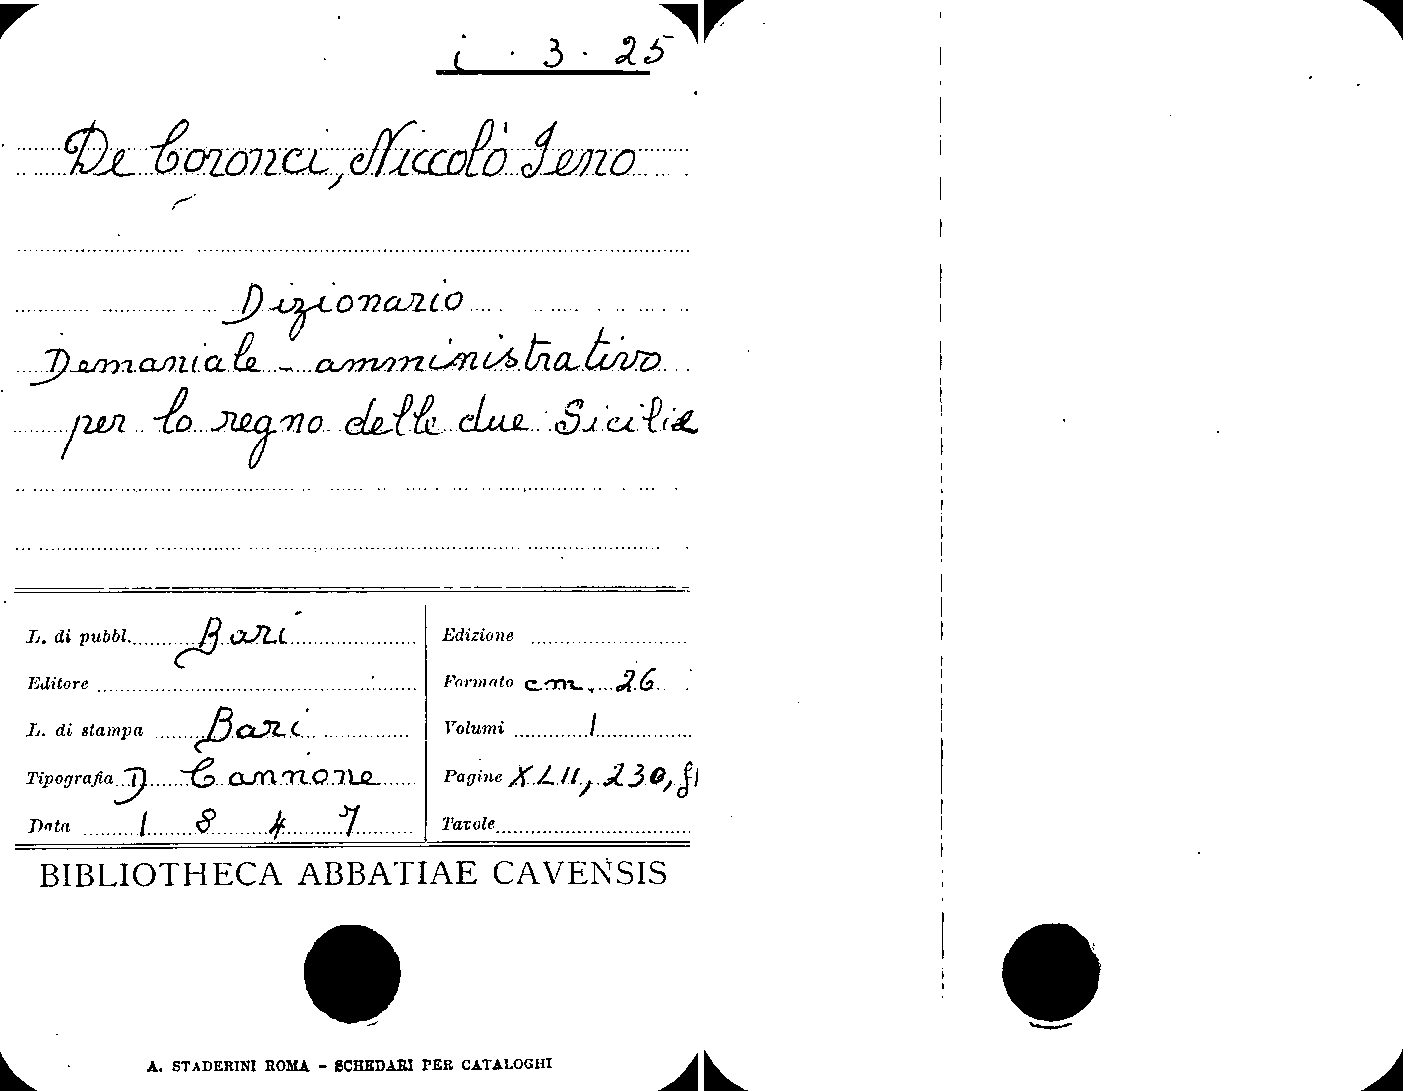 i . 3 . 25
De Coronci, Niccolò Zeno
Dizionario
Demaniale - amministrativo
per lo regno delle due Sicilie
L. di pubbl. Bari
Editore
L. di stampa Bari
Tipografia D Cannone
Data 1847
Edizione
Formato cm. 26
Volumi 1
Pagine XLII, 230,
Tavole
BIBLIOTHECA ABBATIAE CAVENSIS
A. STADERINI ROMA - SCHEDARI PER CATALOGHI